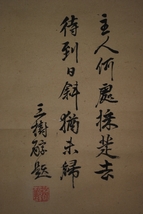 主人何處採芝去
待到日斜猶未歸
三樹
題